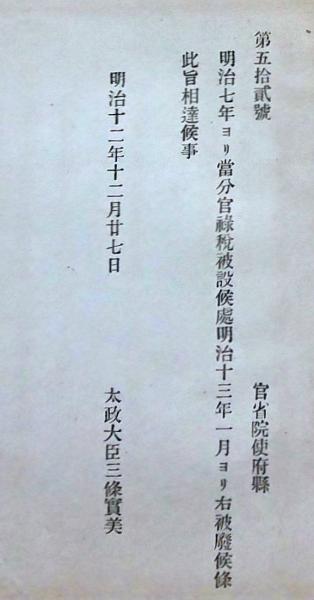 第五拾貳號
官省院使府縣
明治七年ヨリ當分官祿稅被設候處明治十三年一月ヨリ右被廢候條
此旨相達候事
明治十二年十二月廿七日
太政大臣三條實美